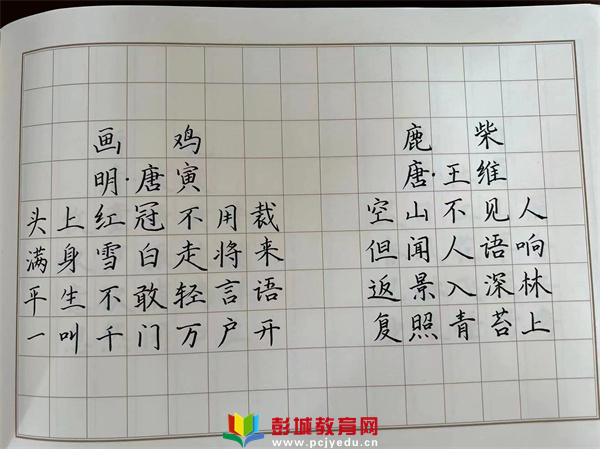 画鸡
明·唐寅
头上红冠不用裁
满身雪白走将来
平生不敢轻言语
一叫千门万户开
鹿柴
唐·王维
空山不见人
但闻人语响
返景入深林
复照青苔上
彭城教育网
www.pcjyedu.cn